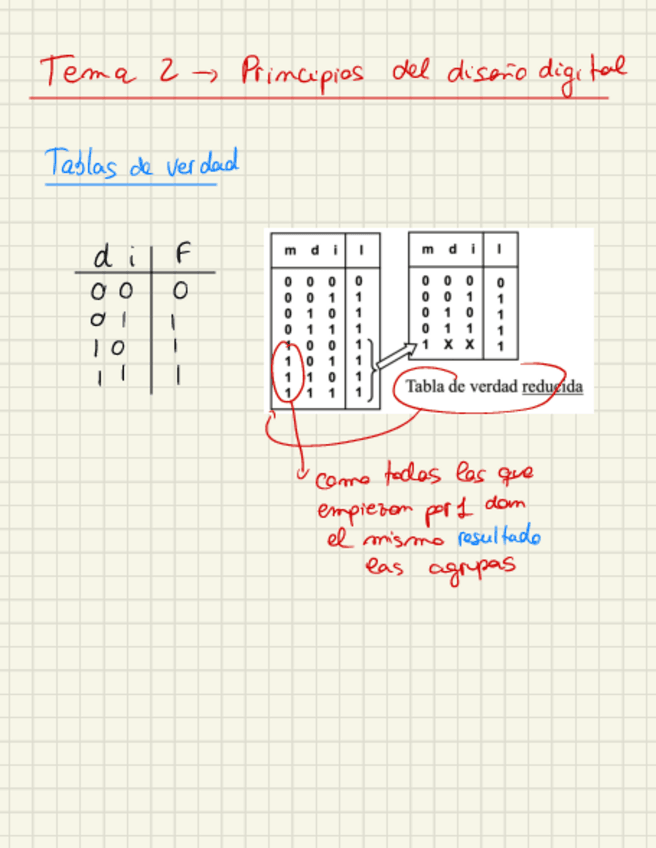 Tema 2 → Principios del diseño digital
Tablas de verdad
d i F
0 0 0
0 1 1
1 0 1
1 1 1
m d i l
0 0 0 0
0 0 1 1
0 1 0 1
0 1 1 1
1 0 0 1
1 0 1 1
1 1 0 1
1 1 1 1
m d i l
0 0 0 0
0 0 1 1
0 1 0 1
0 1 1 1
1 X X 1
Tabla de verdad reducida
como todas las que
empiezan por 1 dan
el mismo resultado
las agrupas